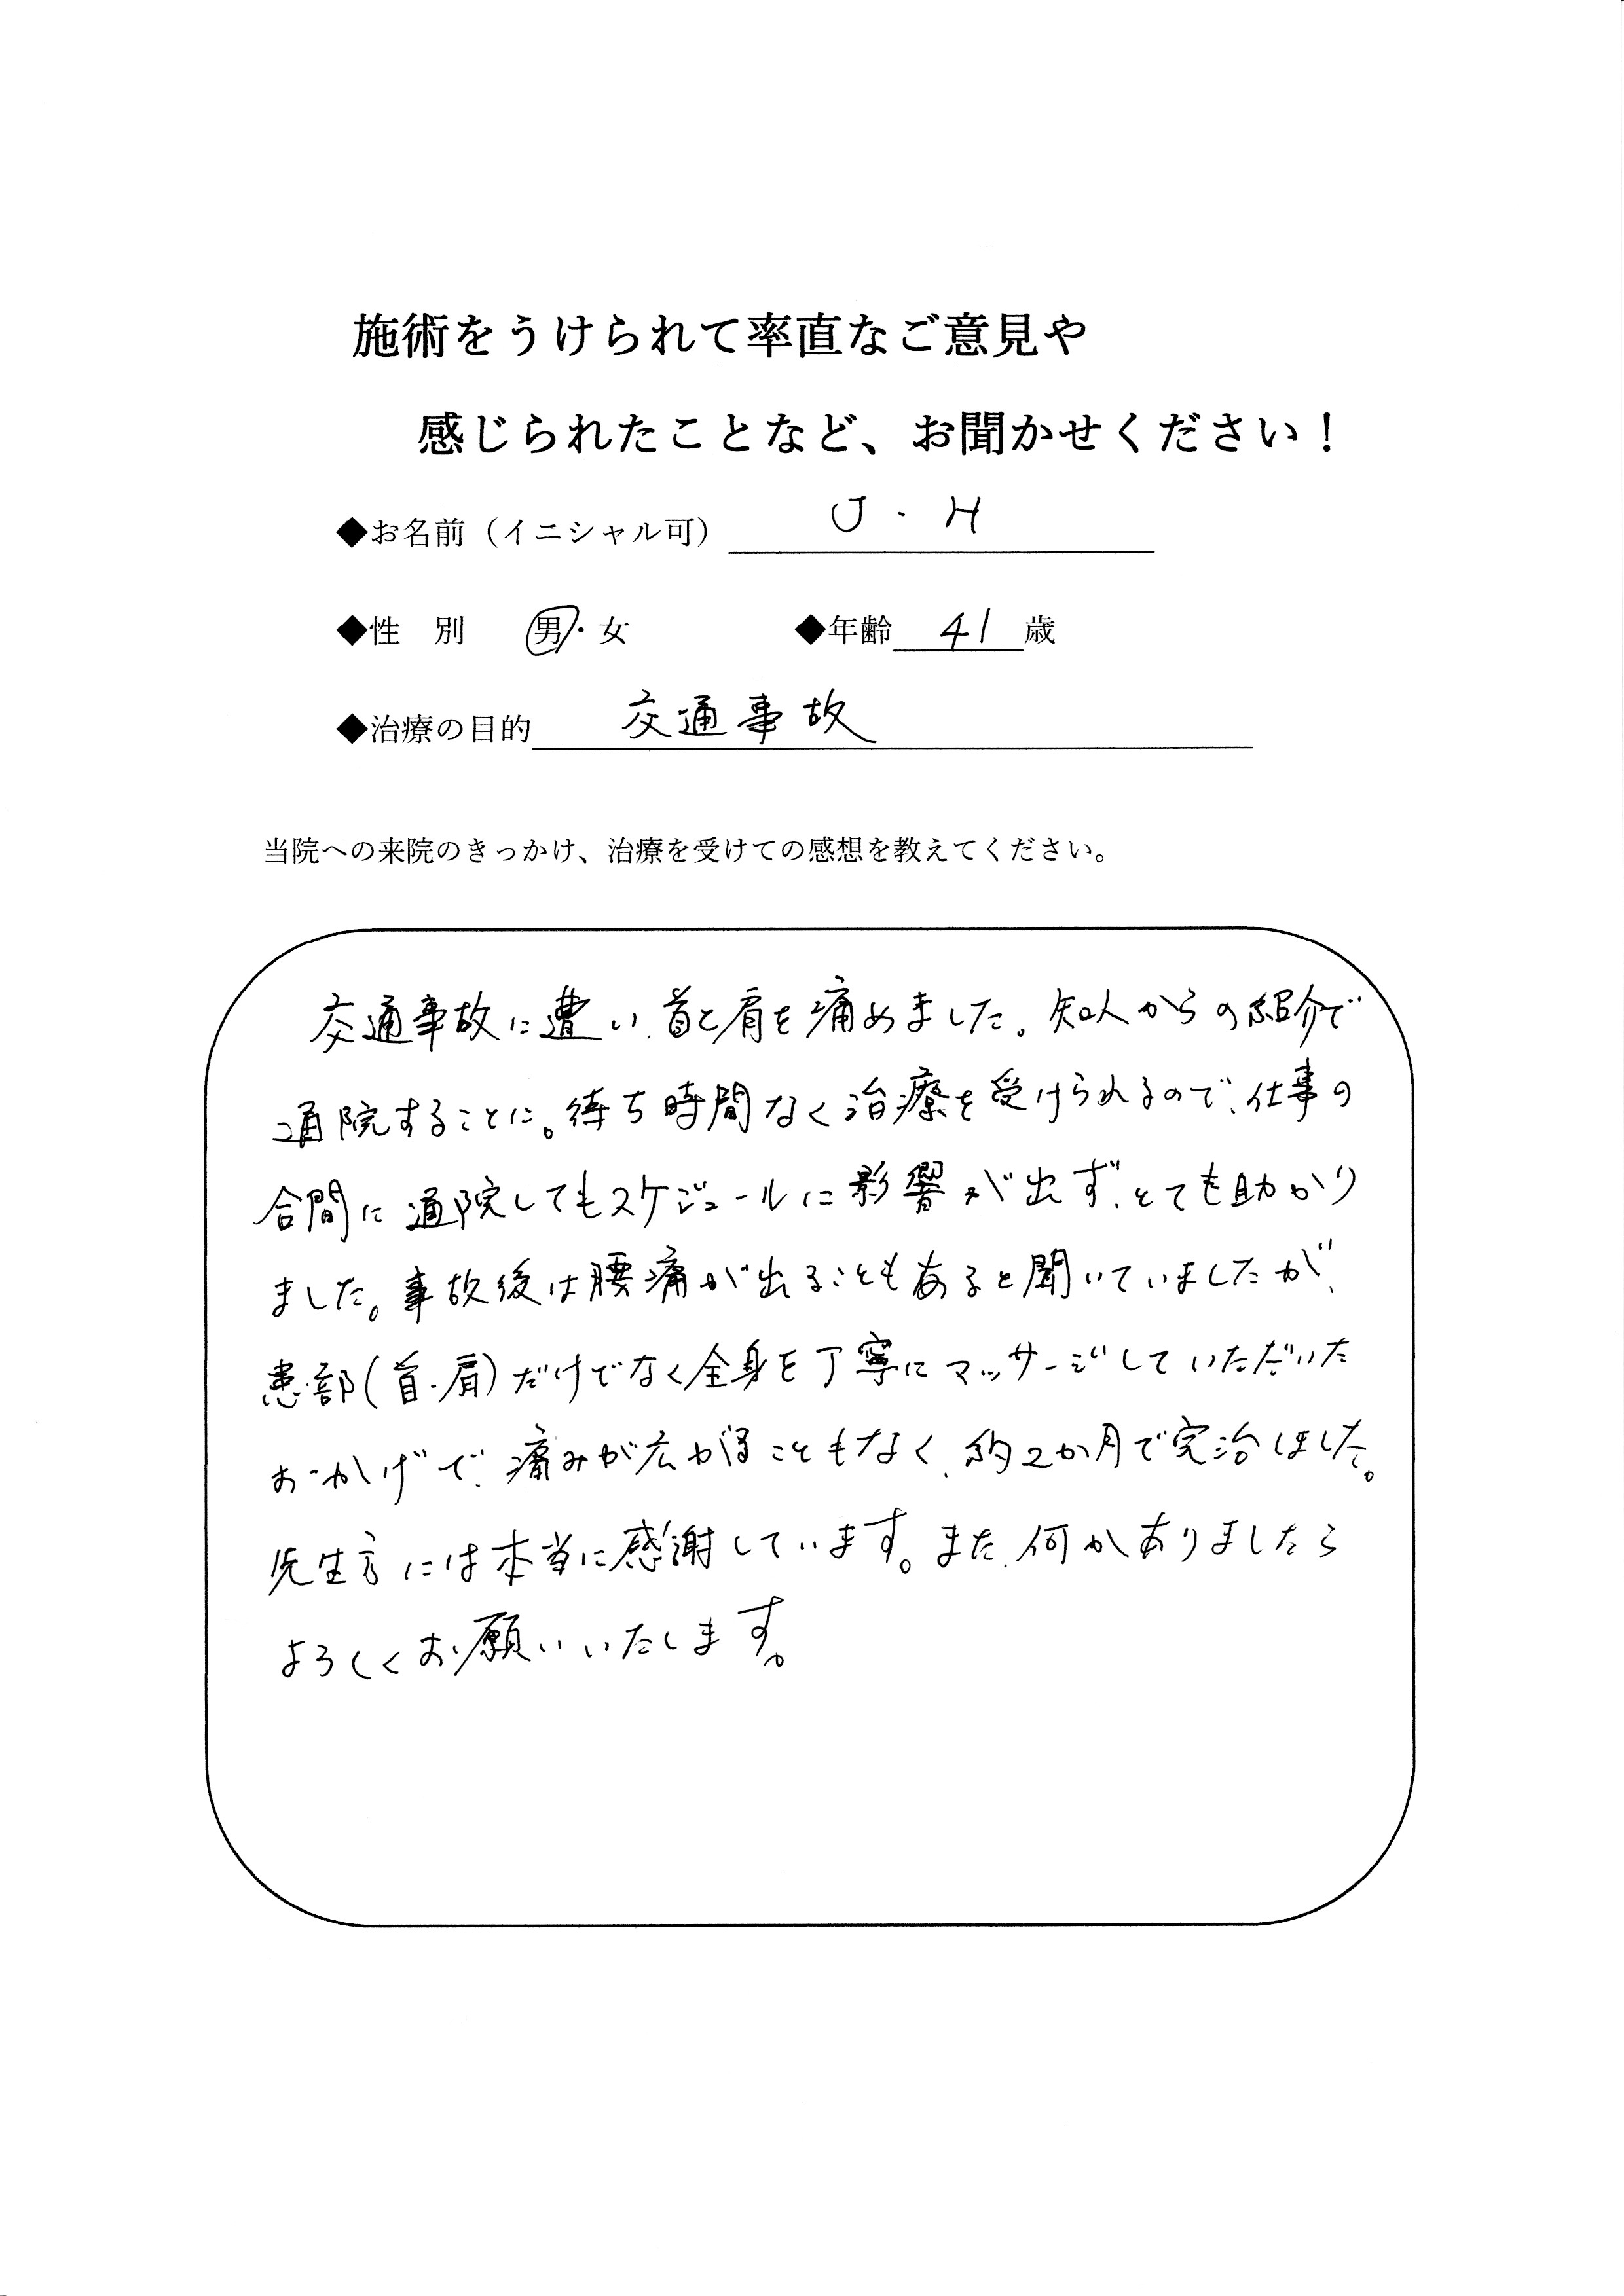 施術をうけられて率直なご意見や
感じられたことなど、お聞かせください！
◆お名前（イニシャル可） J・H
◆性　別　男・女　◆年齢 41 歳
◆治療の目的 交通事故
当院への来院のきっかけ、治療を受けての感想を教えてください。
交通事故に遭い、首と肩を痛めました。知人からの紹介で
通院することに。待ち時間なく治療を受けられるので、仕事の
合間に通院してもスケジュールに影響が出ず、とても助かり
ました。事故後は腰痛が出ることもあると聞いていましたが、
患部(首・肩)だけでなく全身を丁寧にマッサージしていただいた
おかげで、痛みが広がることもなく、約2か月で完治しました。
先生方には本当に感謝しています。また、何かありましたら
よろしくお願いいたします。